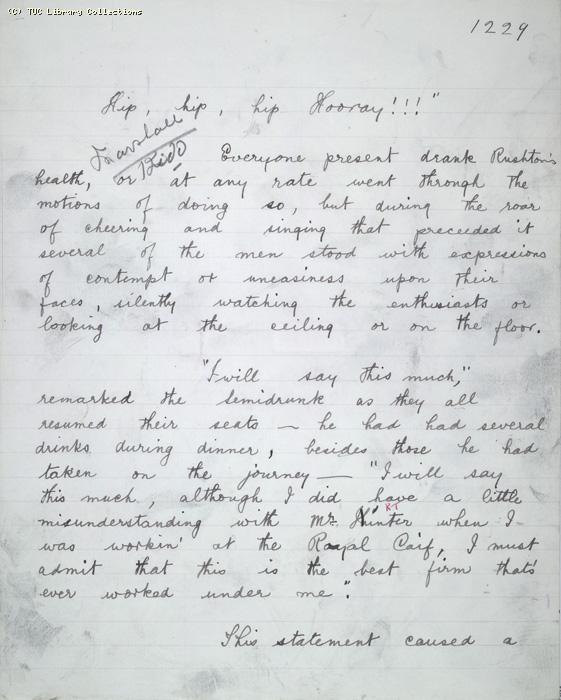 (C) TUC Library Collections
1229
Hip, hip, hip Hooray!!!"
Marshall
Everyone present drank Rushton's
health, or at any rate went through the
motions of doing so, but during the roar
of cheering and singing that preceeded it
several of the men stood with expressions
of contempt or uneasiness upon their
faces, silently watching the enthusiasts or
looking at the ceiling or on the floor.
"I will say this much,"
remarked the semidrunk as they all
resumed their seats — he had had several
drinks during dinner, besides those he had
taken on the journey — "I will say
this much, although I did have a little
RT
misunderstanding with Mr. Hunter when I
was workin' at the Royal Caif, I must
admit that this is the best firm that's
ever worked under me".
This statement caused a